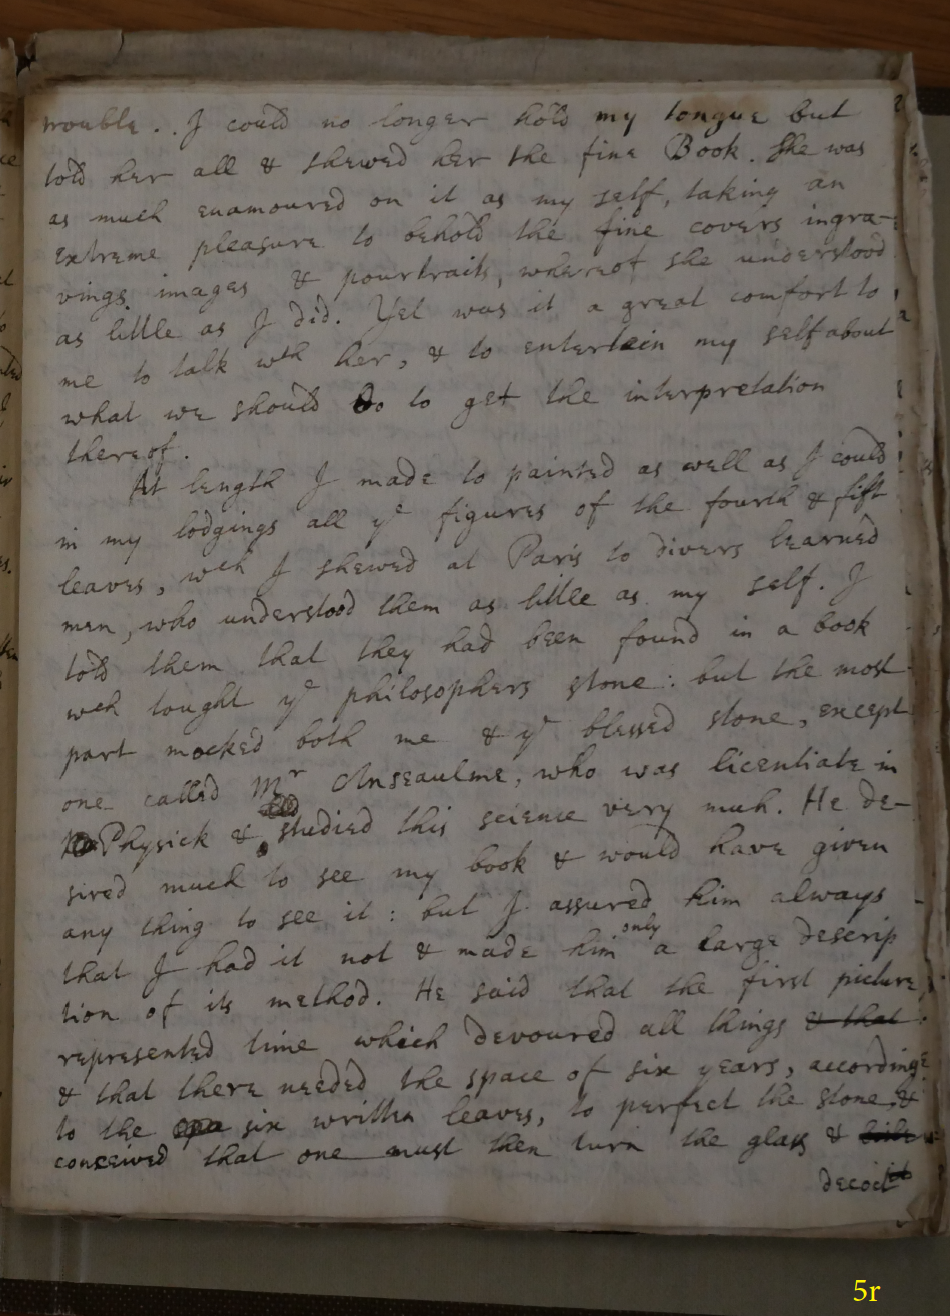 trouble. . I could no longer hold my tongue but
told her all & shewed her the fine Book. She was
as much enamoured on it as my self, taking an
extreme pleasure to behold the fine covers ingra-
vings images & pourtraits, whereof she understood
as little as I did. Yet was it a great comfort to
me to talk wth her, & to entertein my self about
what we should do to get the interpretation
thereof.
At length I made to painted as well as I could
in my lodgings all ye figures of the fourth & fift
leaves, wch I shewed at Paris to divers learned
men, who understood them as little as my self. I
told them that they had been found in a book
wch tought ye philosophers stone: but the most
part mocked both me & ye blessed stone, except
one called Mr Anseaulme, who was licentiate in
Physick & studied this science very much. He de-
sired much to see my book & would have given
any thing to see it: but I assured him always
that I had it not & made him only a large descrip
tion of its method. He said that the first picture
represented time which devoured all things & that
& that there needed the space of six years, according
to the six written leaves, to perfect the stone, &
conceived that one must then turn the glass &
decoct
5r